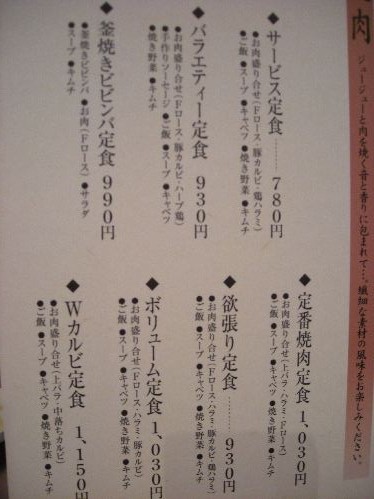 肉
ジュージューと肉を焼く音と香りに包まれて…。繊細な素材の風味をお楽しみください。
◆サービス定食………780円
●お肉盛り合せ(Fロース・豚カルビ・鶏ハラミ)
●ご飯 ●スープ ●キャベツ ●焼き野菜 ●キムチ
◆バラエティー定食 930円
●お肉盛り合せ(Fロース・豚カルビ・ハーブ鶏)
●手作りソーセージ ●ご飯 ●スープ ●キャベツ
●焼き野菜 ●キムチ
◆釜焼きビビンバ定食 990円
●釜焼きビビンバ ●お肉(Fロース) ●サラダ
●スープ ●キムチ
◆定番焼肉定食 1,030円
●お肉盛り合せ(上バラ・ハラミ・Fロース)
●ご飯 ●スープ ●キャベツ ●焼き野菜 ●キムチ
◆欲張り定食………930円
●お肉盛り合せ(Fロース・ハラミ・豚カルビ)
●ご飯 ●スープ ●キャベツ ●焼き野菜 ●キムチ
◆ボリューム定食 1,030円
●お肉盛り合せ(Fロース・ハラミ・豚カルビ)
●ご飯 ●スープ ●キャベツ ●焼き野菜 ●キムチ
◆Wカルビ定食 1,150円
●お肉盛り合せ(上バラ・中落ちカルビ)
●ご飯 ●スープ ●キャベツ ●焼き野菜 ●キムチ